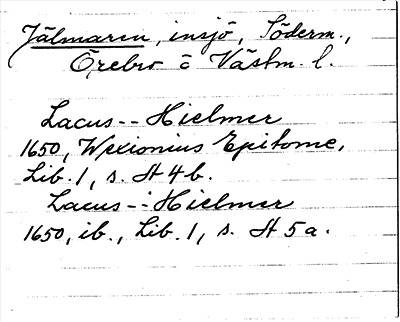 Jälmaren, insjö, Söderm.,
Örebro o Västm. l.
Lacus -- Hielmer
1650, Wexionius Epitome,
Lib. 1, s. H 4 b.
Lacus -- Hielmer
1650, ib., Lib. 1, s. H 5 a.